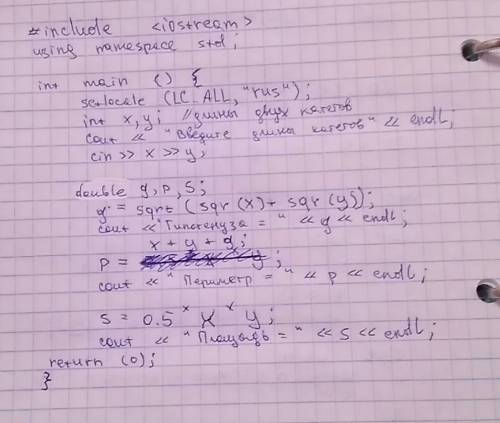 #include <iostream>
using namespace std;
int main () {
setlocale (LC_ALL, "rus");
int x, y; //длины двух катетов
cout << "Введите длины катетов" << endl;
cin >> x >> y;
double g, p, S;
g = sqrt (sqr (x) + sqr (y));
cout << "Гипотенуза = " << g << endl;
x + y + g;
p = ;
cout << "Периметр = " << p << endl;
S = 0.5 * x * y;
cout << "Площадь = " << S << endl;
return (0);
}